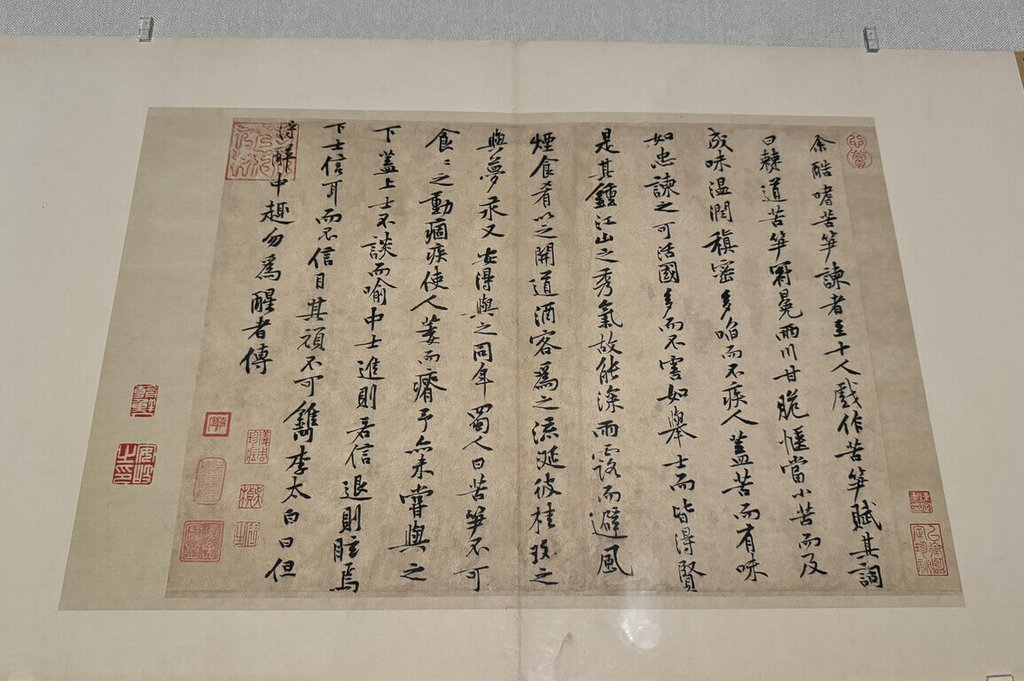 余酷嗜苦笋諫者至十人戲作苦笋賦其詞
曰僰道苦笋冠冕兩川甘脆愜當小苦而及
成味溫潤縝密多啗而不疾人蓋苦而有味
如忠諫之可活國多而不害如舉士而皆得賢
是其鍾江山之秀氣故能深雨露而避風
煙食肴以之開道酒客爲之流涎彼桂玫之
與夢永又安得與之同年蜀人曰苦笋不可
食〻之動痼疾使人萎而瘠予亦未嘗與之
下蓋上士不談而喻中士進則若信退則眩焉
下士信耳而不信目其頑不可鐫李太白曰但
得醉中趣勿爲醒者傳